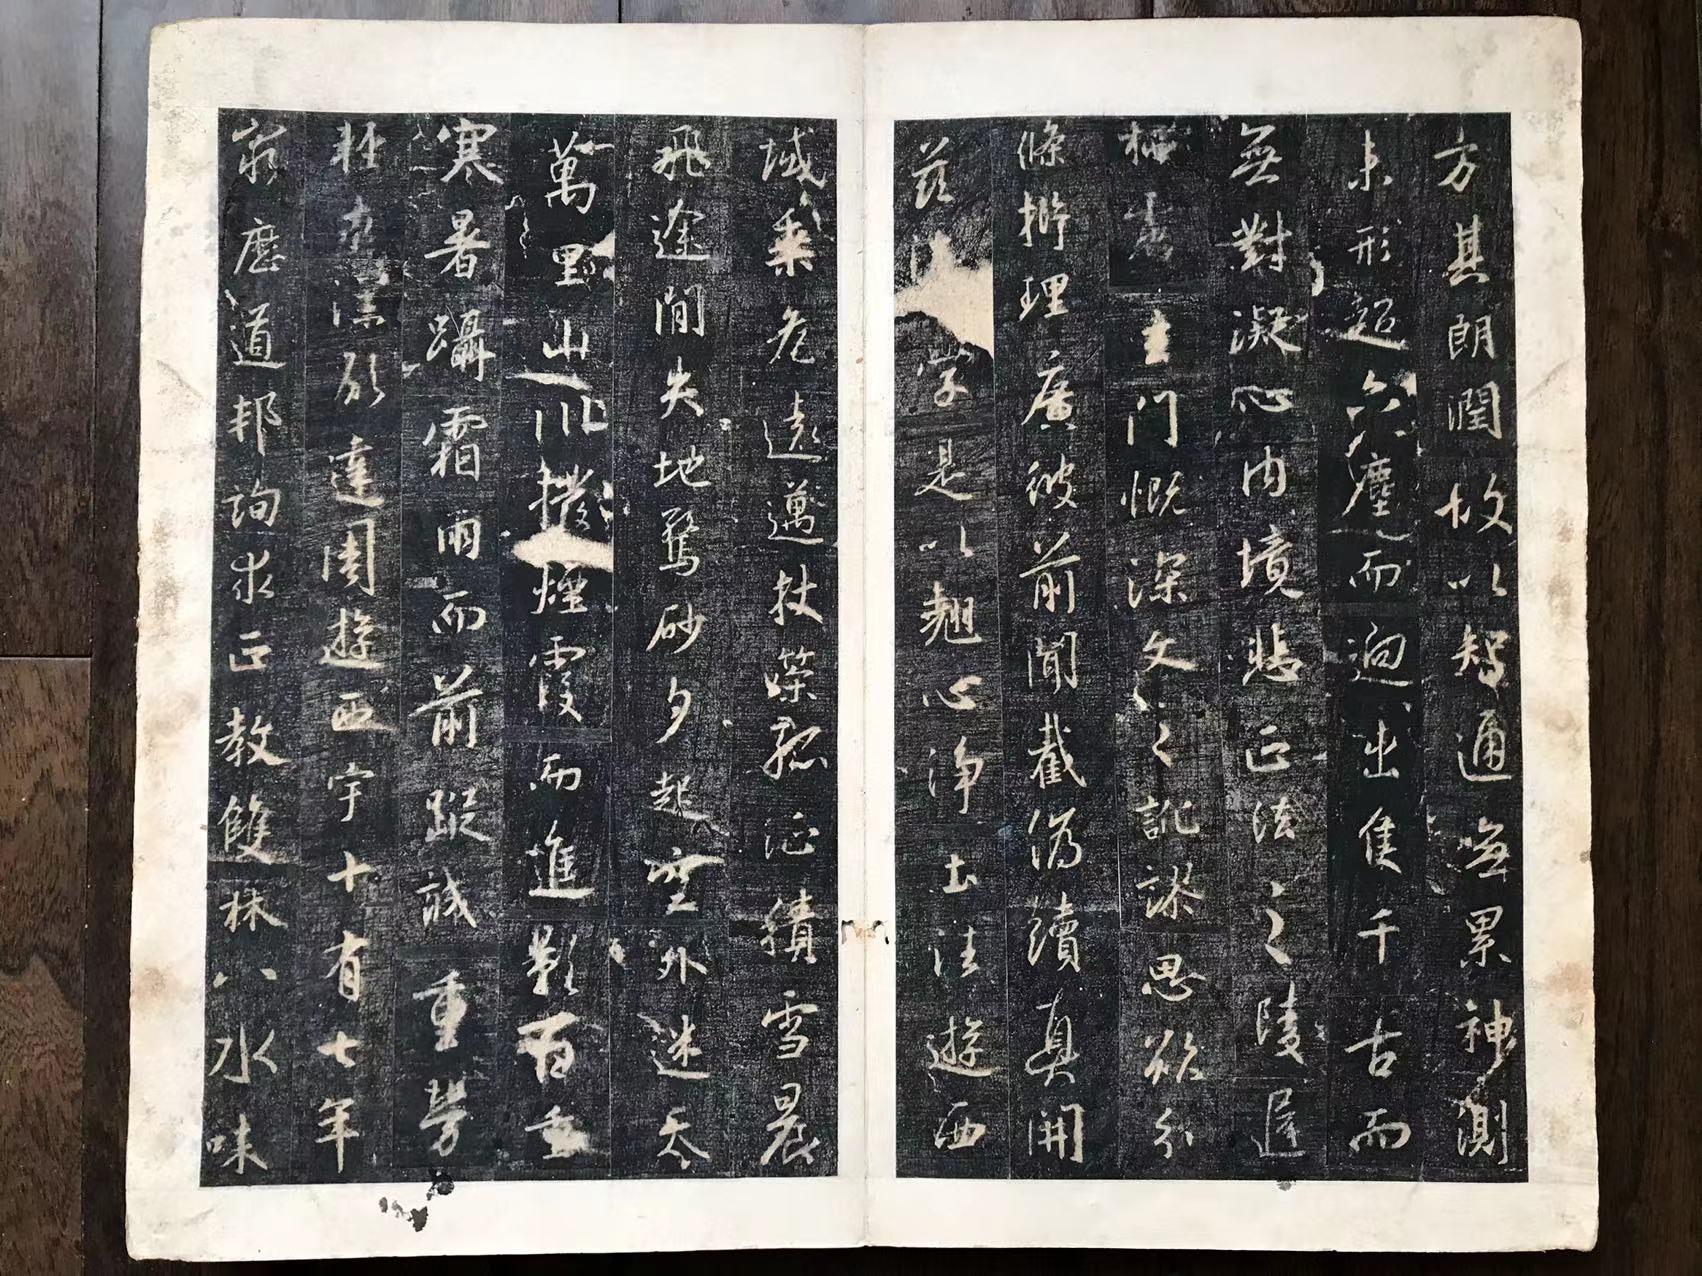 方其朗潤故以智通無累神測
未形超六塵而迥出隻千古而
無對凝心內境悲正法之陵遲
栖慮玄門慨深文之訛謬思欲分
條析理廣彼前聞截偽續真開
茲後學是以翹心淨土法遊西
域乘危遠邁杖策孤征積雪晨
飛途間失地驚砂夕起空外迷天
萬里山川撥煙霞而進影百重
寒暑躡霜雨而前蹤誠重勞
輕求深願達周遊西宇十有七年
窮歷道邦詢求正教雙林八水味